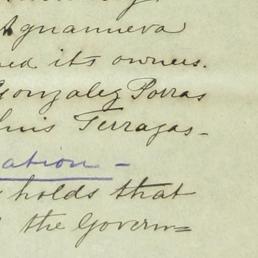 Aguanueva
ed its owners.
Gonzalez Porras
Luis Terrazas-
ation -
holds that
the Govern=